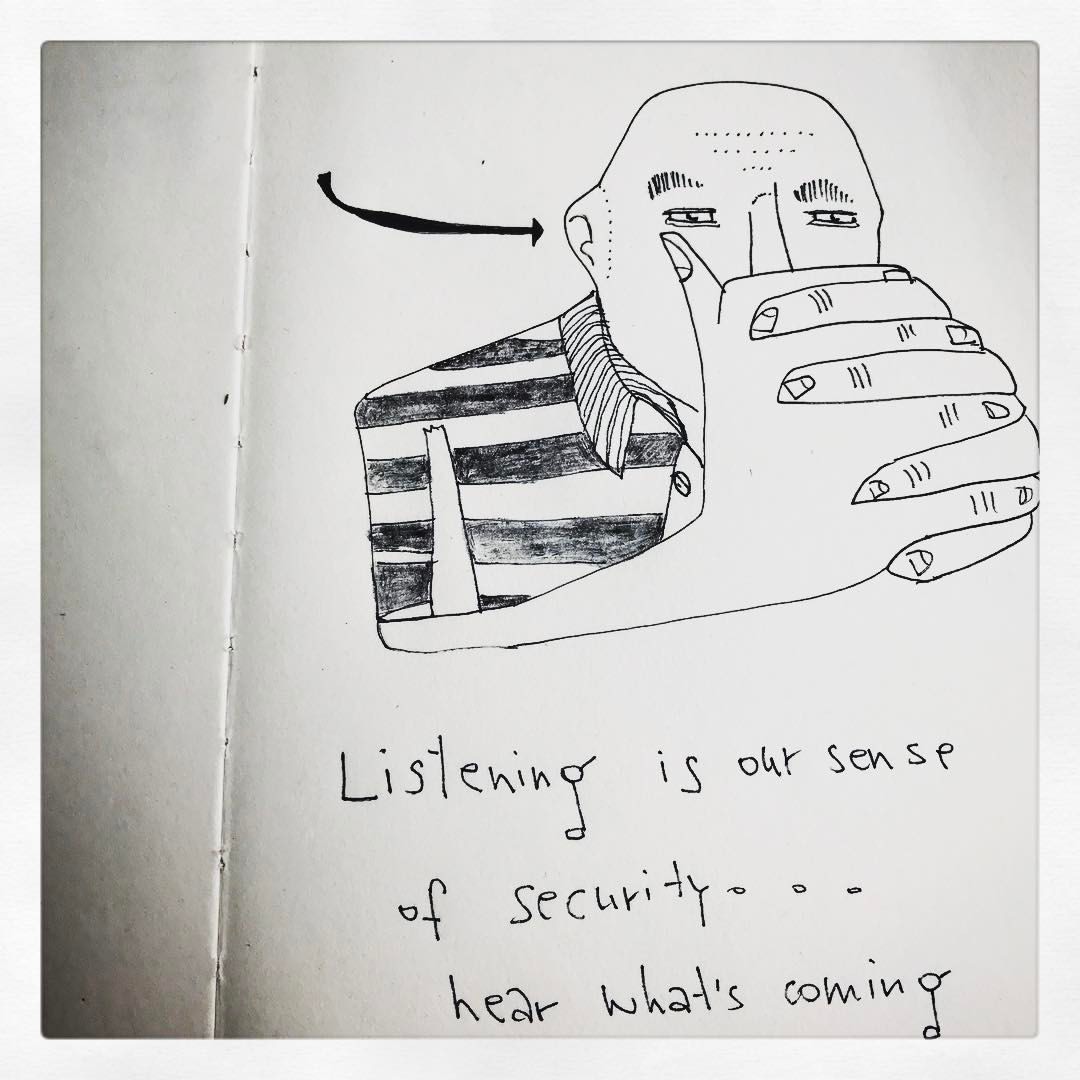 Listening is our sense
of security...
hear what's coming